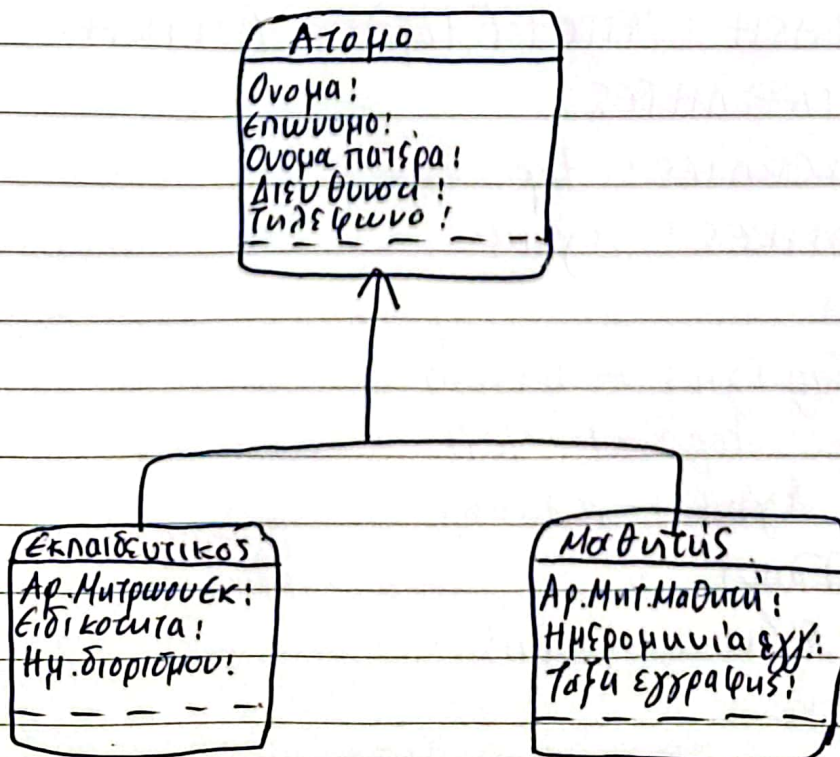 Ατομο
Ονομα:
Επώνυμο:
Ονομα πατέρα:
Διευθυνση:
Τηλέφωνο:
Εκπαιδευτικος
Αρ.ΜητρωουΕκ:
Ειδικοτητα:
Ημ.διορισμου:
Μαθητής
Αρ.Μητ.Μαθητή:
Ημερομηνία εγγ.:
Ταξη εγγραφης: